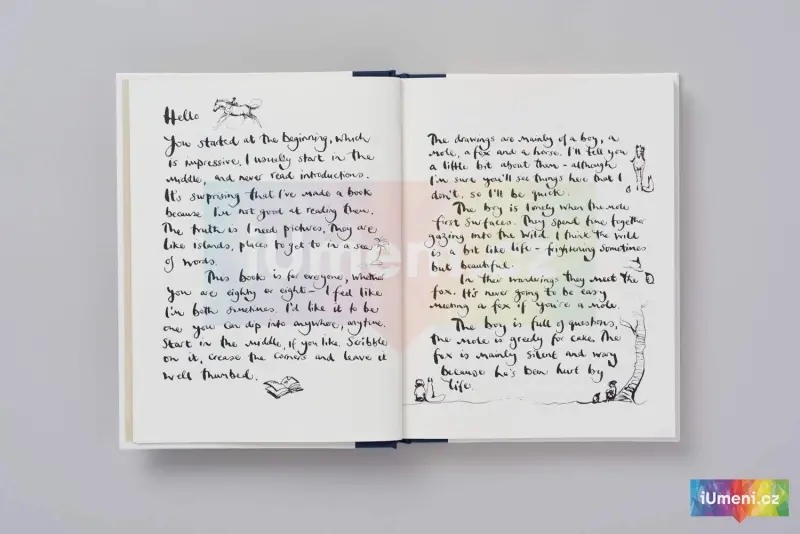 Hello
You started at the beginning, which
is impressive. I usually start in the
middle, and never read introductions.
It's surprising that I've made a book
because I'm not good at reading them.
The truth is I need pictures, they are
like islands, places to get to in a sea
of words.
This book is for everyone, whether
you are eighty or eight – I feel like
I'm both sometimes. I'd like it to be
one you can dip into anywhere, anytime.
Start in the middle, if you like. Scribble
on it, crease the corners and leave it
well thumbed.
The drawings are mainly of a boy, a
mole, a fox and a horse. I'll tell you
a little bit about them – although
I'm sure you'll see things here that I
don't, so I'll be quick.
The boy is lonely when the mole
first surfaces. They spend time together
gazing into the wild. I think the wild
is a bit like life – frightening sometimes
but beautiful.
In their wanderings they meet the
fox. It's never going to be easy
meeting a fox if you're a mole.
The boy is full of questions,
the mole is greedy for cake. The
fox is mainly silent and wary
because he's been hurt by
life.
iUmeni.cz
iUmeni.cz